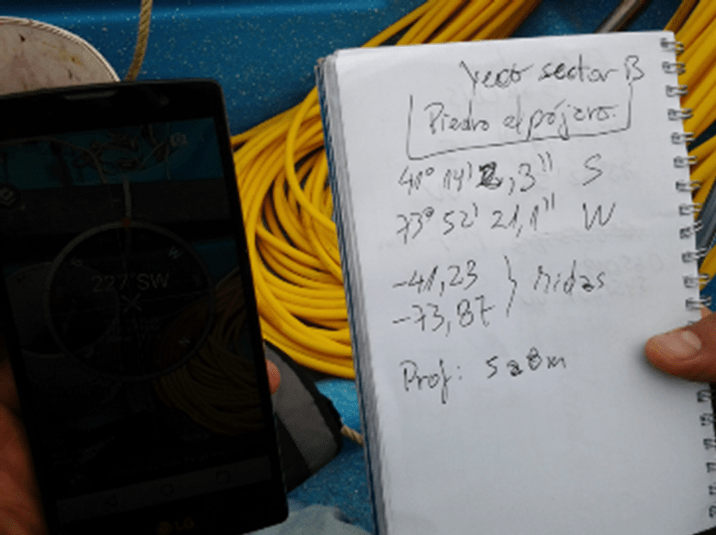 227 SW
LG
sector B
Piedra el pájaro.
41° 14' 2,3'' S
73° 52' 21,1'' W
-41,23
-73,87 } midas
Prof: 5 a 8m